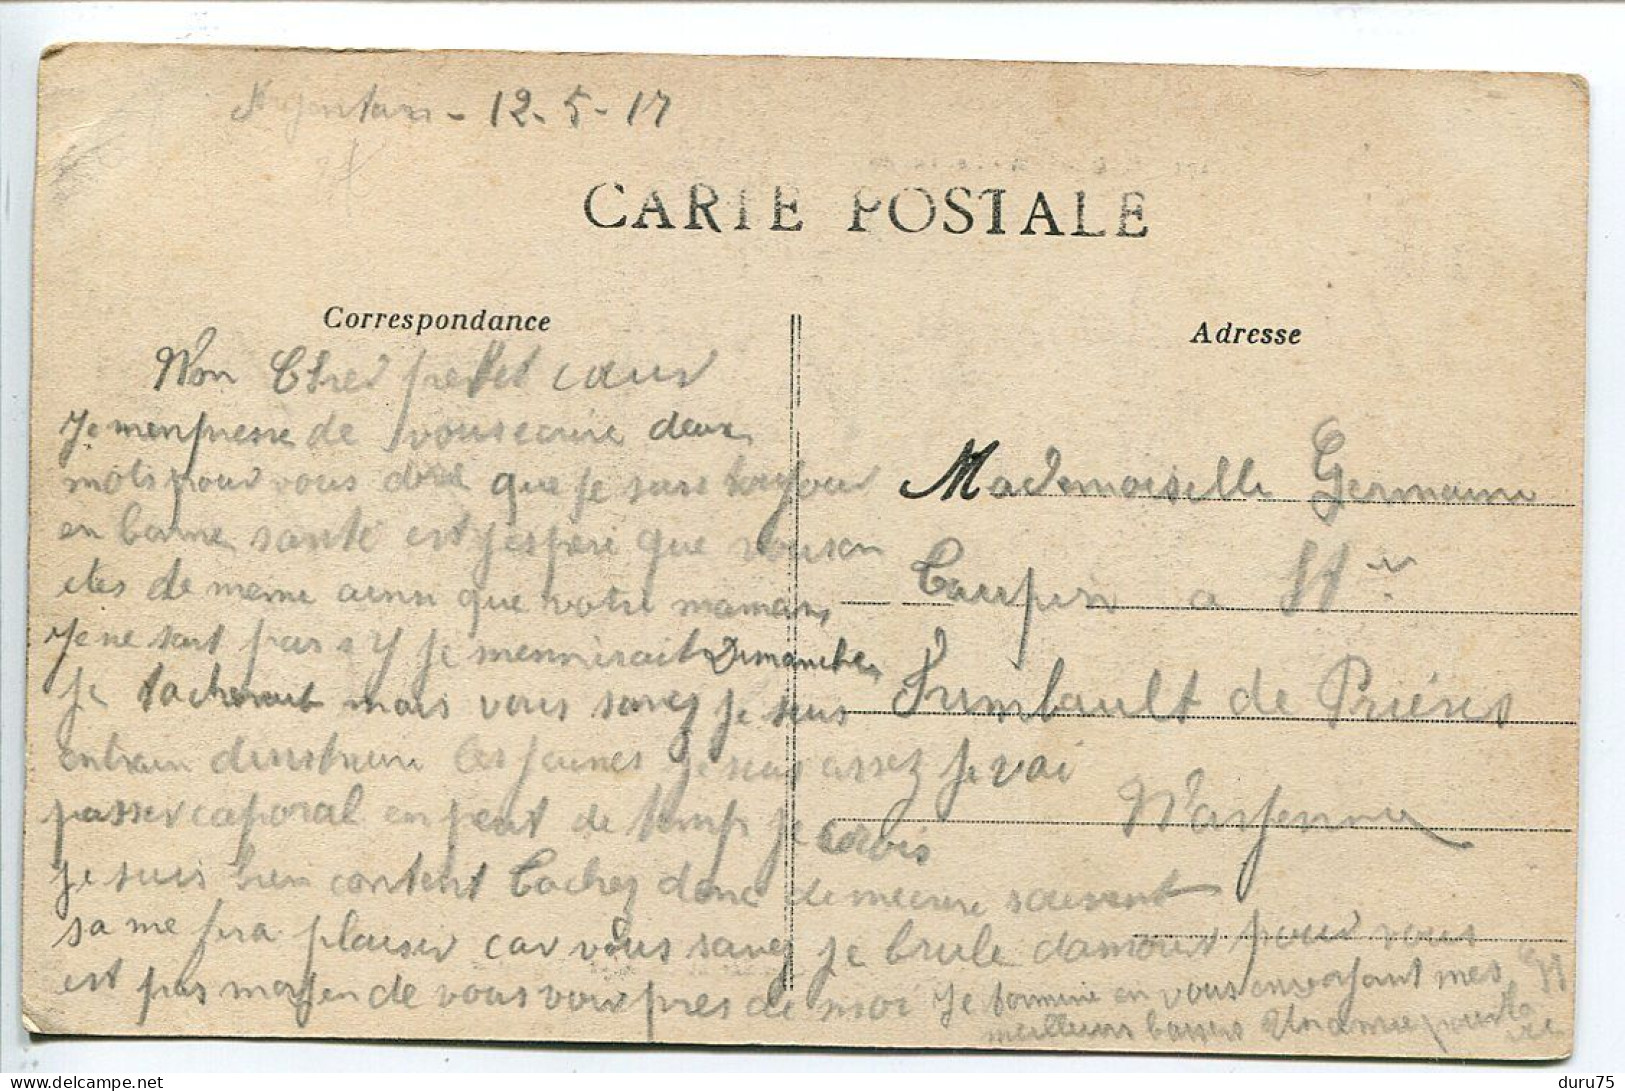 Argentan - 12-5-17
CARTE POSTALE
Correspondance
Adresse
Mon Cher petit cœur
Je menpresse de vous ecrire deux
mots pour vous dire que je suis toujour
en bonne santé est jespere que vous en
etes de meme ainsi que votre maman
Je ne sait pas s y je mennirait Dimanche
Je tacherait mais vous savez je suis
entrain dinstruire les jeunes je suis assez je vai
passer caporal en peut de temps je crois
Je suis bien content Tachez donc de mecrire souvent
sa me fera plaisir car vous savez je brule damour pour vous
est pas moyen de vous voir pres de moi Je termine en vous envoyant mes
meilleurs baisers Un amie pour la
vie
Mademoiselle Germaine
Taupin a St
Fimbault de Prières
Mayenne
duru75